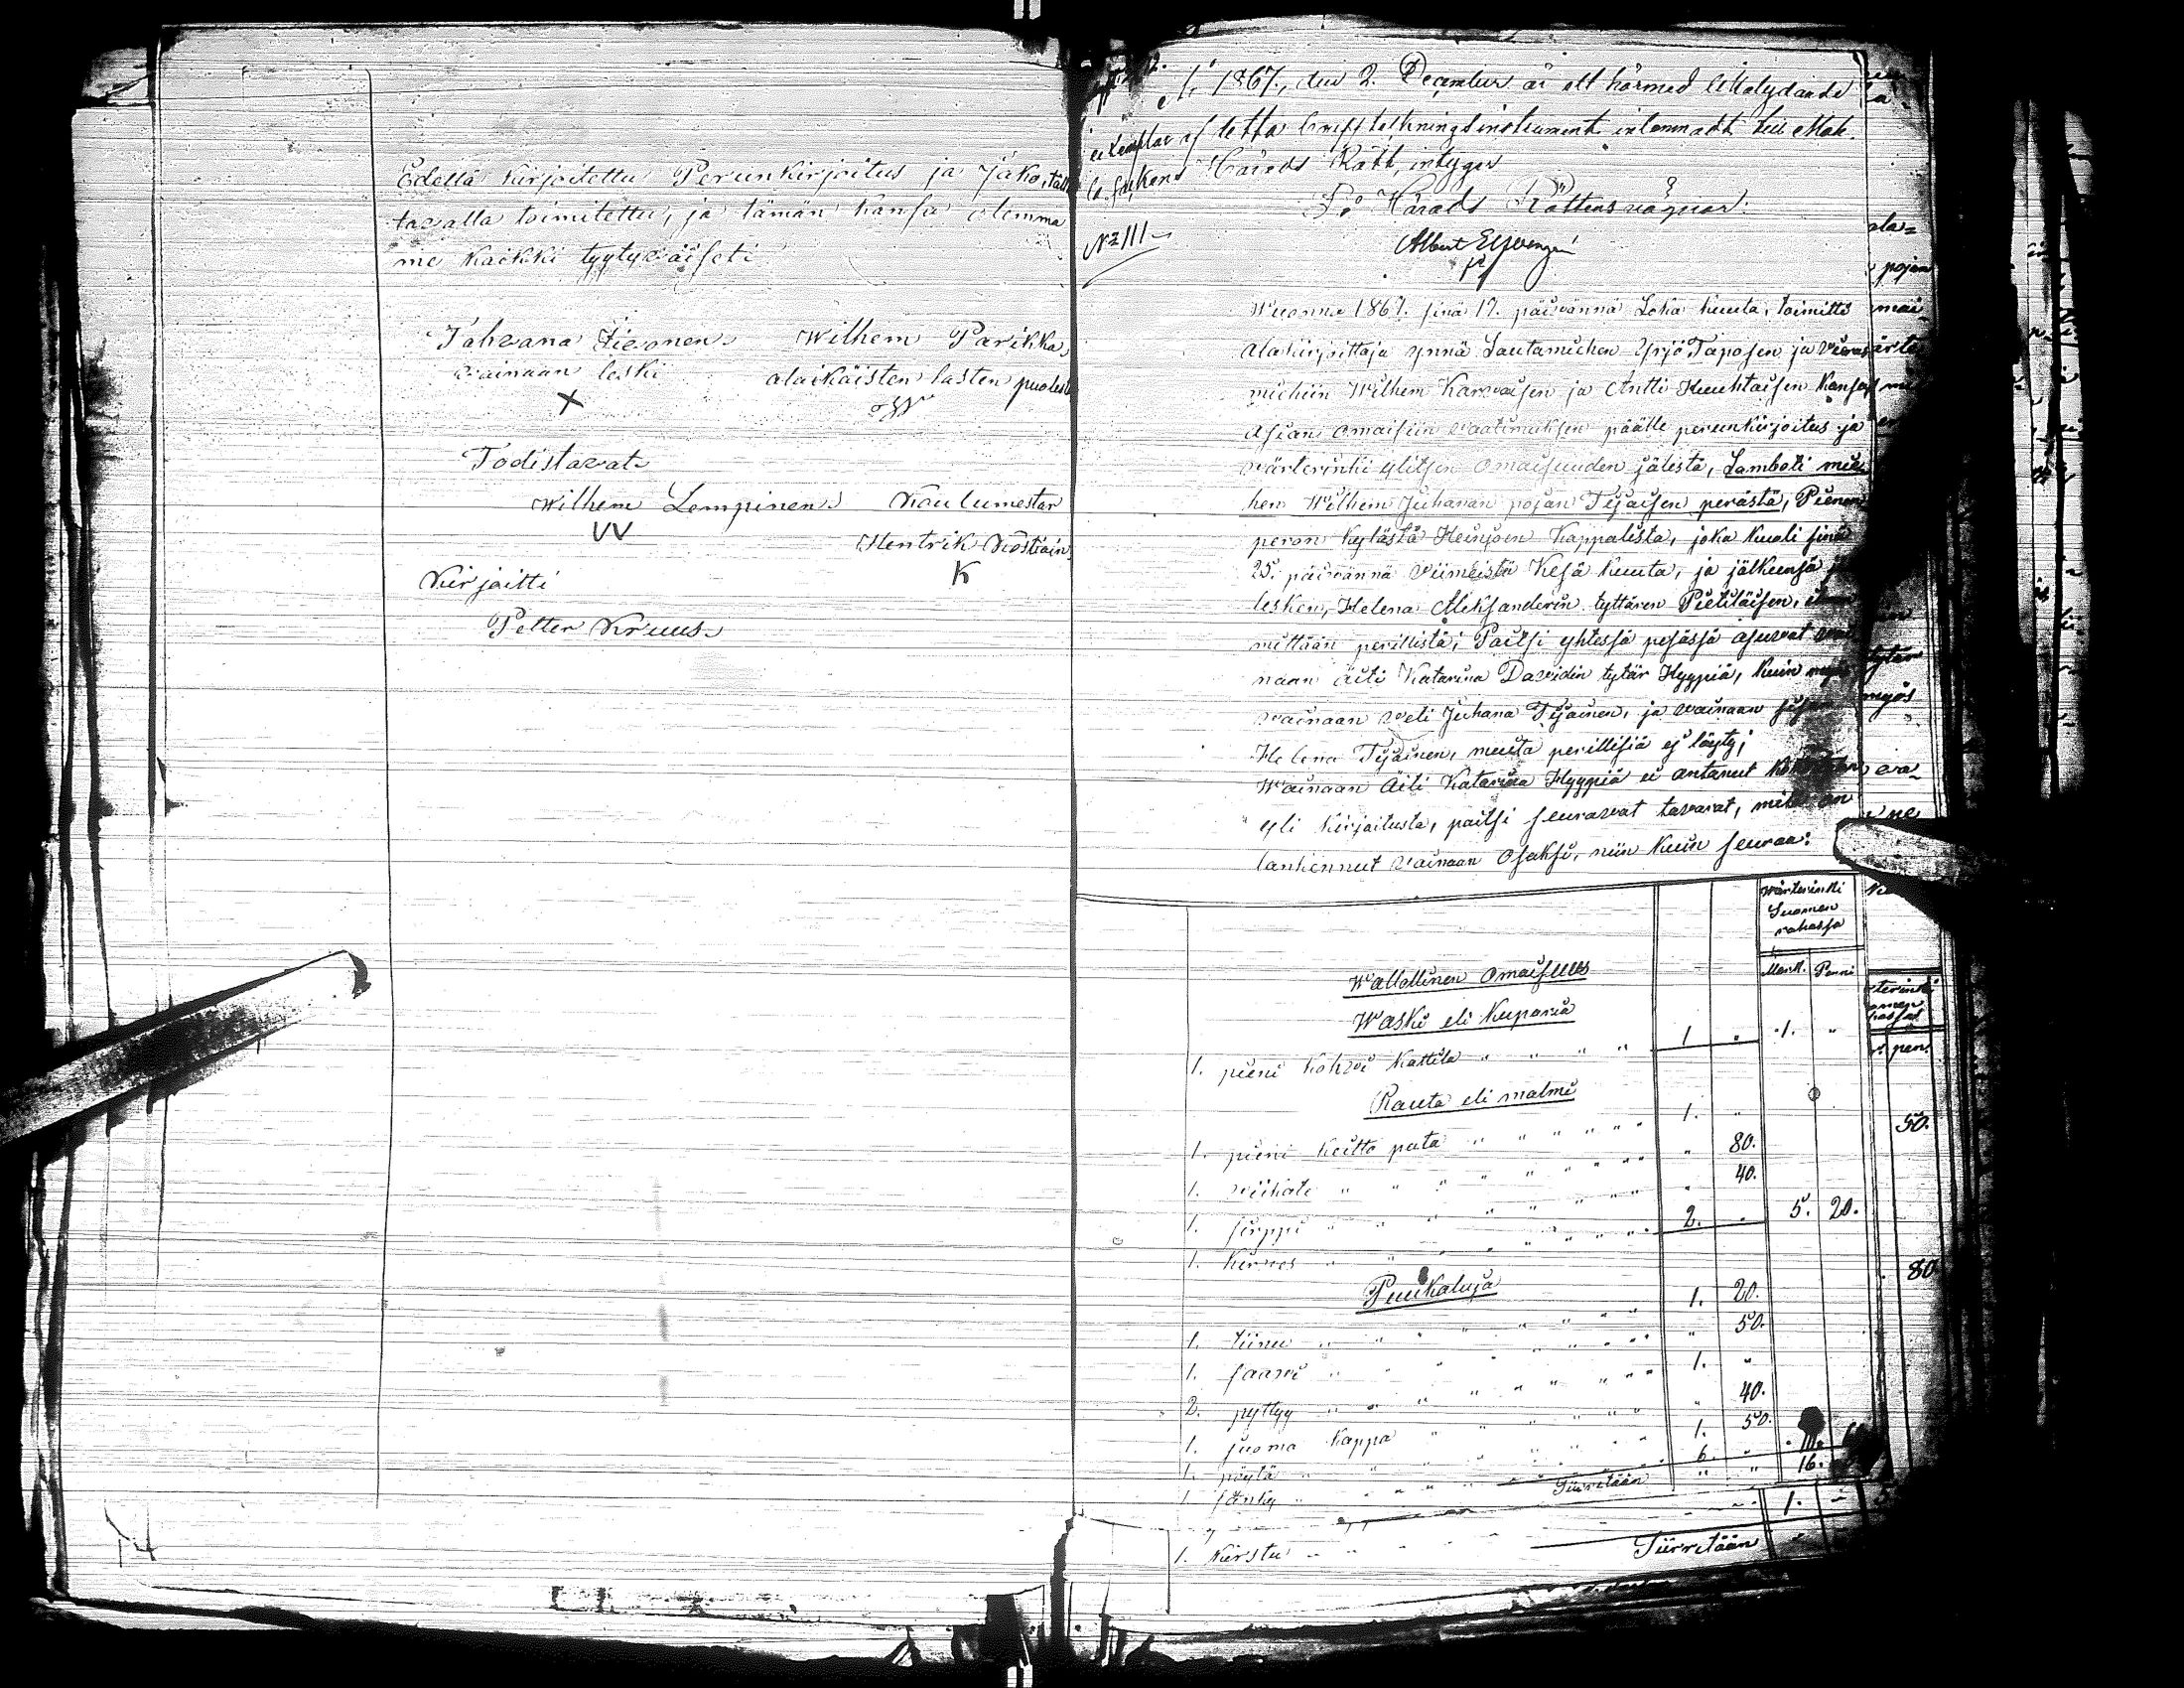 Edellä kirjoitettu Perunkirjoitus ja Jako, tällä
tavalla toimitettu, ja tämän kansa olemma
me kaikki tyytyväiseti
Tahvana Iivonen Wilhem Parikka
vainaan leski alaikäisten lasten puolest
X W
Todistavat
Wilhem Lempinen Koulumestar
W Hentrik Kostiain
K
Kirjoitti
Petter Kruus
Ao 1867, den 2. December är ett härmed lika lydande
exemplar af detta bouppteckningsinstrument inlemnadt till
Härads Rätt, intygar
På Härads Rättens vägnar.
No 111
Albert
Wuonna 1867. sinä 17. päivännä Loka kuuta, toimitti
Alakirjoittaja ynnä Lautamiehen Yrjö Taposen ja vieras
miehiin Wilhem Karvaisen ja Antti Huuhtaisen kansa,
Asian omaisiin vaatimuksen päälle perunkirjoitus ja
värterinki ylitsen omaisuuden jälistä, Lamboti mie
hen Wilhem Juhanan pojan Tijaisen perästä, Pienen
peron kylästä Heinjoen Kappalista, joka kuoli sinä
25. päivännä viimeistä Kesä kuuta, ja jälkeensä
lesken, Helena Aleksanderin tyttären Pietiläisen, ilman
mittään perillistä; Paitsi yhtessä pesässä asuvat vai
naan äiti Katarina Davidin tytär Hyypiä, kuin myös
vainaan veli Juhana Tijainen, ja vainaan sisar
Helena Tijainen, muita perillisiä ej löyty;
Wainaan Äiti Katarina Hyypiä ei antanut
yli kirjoitusta, paitsi seuravat tavarat, mitk on
lankennut vainaan Osaksi, niin kuin seuraa:
Wärterinki
Suomen
rahassa
Mark. Penni
Wallallinen Omaisuus
Waski eli Kuparia
1. pieni kohvi kattila " " " " 1 " 1. "
Rauta eli malmi
1. pieni keitto pata " " " " 1. "
1. viikate " " " " " 80.
1. sirppi " " " " " 40.
1. kirves " " " " 2. " 5. 20.
Puukaluja
1. tiinu " " " " 1. 20.
1. saavi " " " " " 50.
2. pyttyy " " " " 1. "
1. juoma kappa " " " " " 40.
1. pöytä " " " " 1. 50.
1. sänky " " " " 6. "
Siirretään " " 16.
1. kirstu " " " 1. "
Siirretään
pojan
myös
50.
80